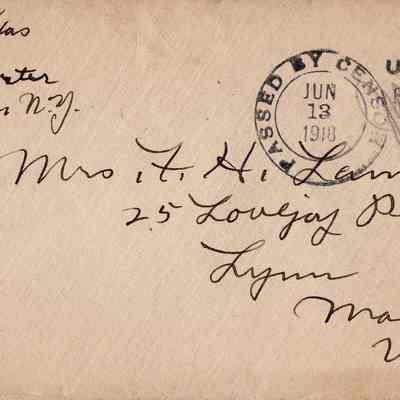 N.Y.
PASSED BY CENSOR
JUN
13
1918
U
Mrs. F. H. Lam
25 Lovejoy P
Lynn
Ma